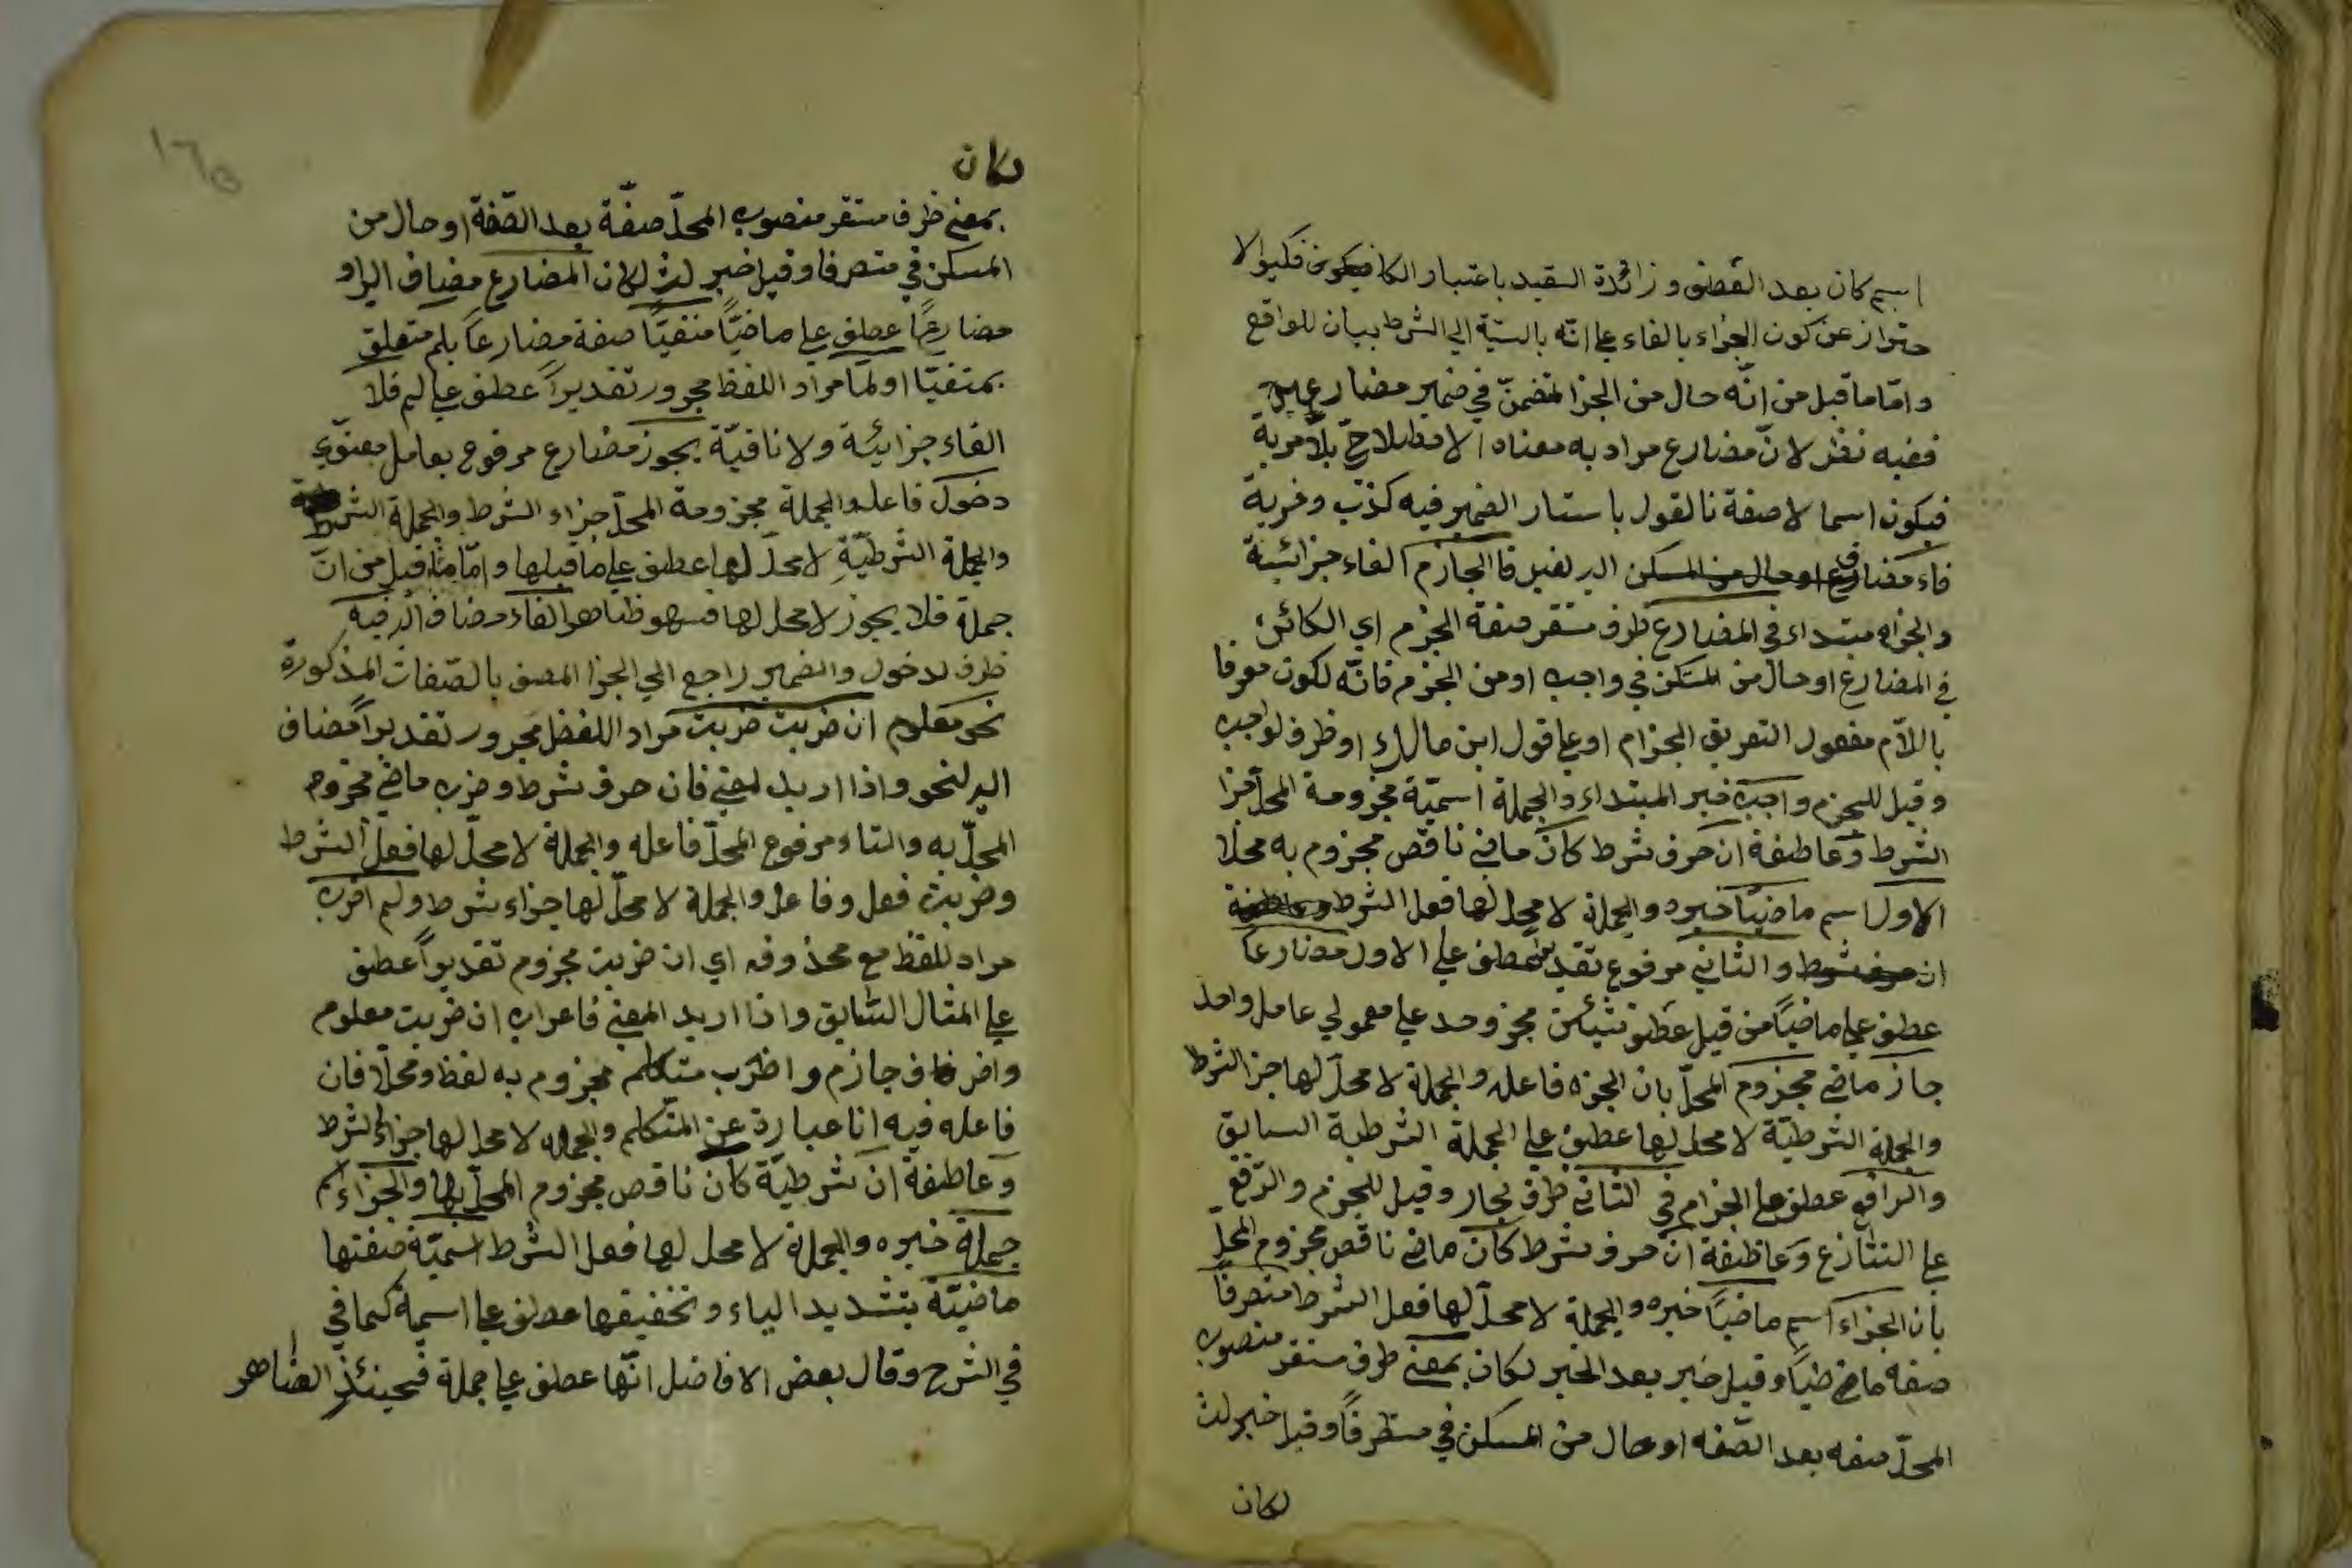 اسم كان بعد القصى و زائدة التقيد باعتبار الكا فيكون فكيو الا
حتراز عن كون الجزاء بالفاء على انّه بالسيّة الى الشرط بيان للواقع
وامّا ما قيل من انّه حال من الجزا لتضمنّ في ضمير مضارع
ففيه نظر لانّ مضارع مراد به معناه الاصطلاحيّ بلا مرية
فيكون اسما لا صفة نا لقول باستتار الضمير فيه كذب وفرية
فاء مضارع او حال من المسكن اليه لفيل فا الجازم الفاء جزائيّة
والجزاء مبتداء في المضارع ظرف مستقر صفة الجزم اي الكائن
في المضارع او حال من المسكن في واجب او من الجزم فانّه لكون معرفا
باللاّم مفعول التعريق الجزام او على قول ابن مالك او ظرف لواجب
وقيل للجزم واجب خبر المبتداء والجملة اسميّة مجزومة المحلّ جزا
الشرط وعاطفة ان حرف شرط كان ماضي ناقص مجزوم به محلا
الاول اسم ماضيّا خبره والجملة لا محل لها فعل الشرط وعاطفة
ان حرف شرط والثاني مرفوع تقديرا عطف على الاول مضارعا
عطف على ماضيّا من قيل عطف شيئين مجزوحد على معمولي عامل واحد
جاز ماضي مجزوم المحلّ بان الجزم فاعله والجملة لا محلّ لها جزا الشرط
والجملة الشرطيّة لا محل لها عطف على الجملة الشرطية السابق
والرافع عطف على الجزام في الثاني ظرف لجاز وقيل للجزم والرّفع
على التنازع وعاطفة ان حرف شرط كان ماضي ناقص مجزوم المحلّ
بان الجزاء اسم ماضيّا خبره والجملة لا محلّ لها فعل الشرط متصرفا
صفه ماضيا وقيل خبر بعد الخبر لكان بمعنى ظرف مستقر منصوب
المحلّ صفه بعد الصّفه او حال من المسكن في متصرفا وقيل خبر لث
لكان
١٦٥
لكان
بمعنى ظرف مستقر منصوب المحلّ صفّة بعد الصّفة او حال من
المسكن في متصرفا وقيل خبر لث لكان المضارع مضاف اليه او
مضارعًا عطف على ماضيّا منفيّا صفة مضارعًا بلم متعلق
بمنفيّا او لمّا مراد اللفظ مجرور تقديرًا عطف على لم فلا
الفاء جزائيّة ولا نافيّة يجوز مضارع مرفوع بعامل معنوي
دخول فاعله والجملة مجزومة المحلّ جزاء الشرط والجملة الشرطية
والجملة الشرطيّة لا محلّ لها عطف على ما قبلها وامّا ما قيل من انّ
جملة فلا يجوز لا محل لها فسهو ظاهر الفاء مضاف اليه فيه
ظرف لدخول والضمير راجع الى الجزا المصف بالصّفات المذكورة
نحو معلوم ان ضربت ضربت مراد اللفظ مجرور تقديرًا مضاف
اليه لنحو واذا اريد لمعنى فان حرف شرط وضرب ماضي مجزوم
المحلّ به والتاء مرفوع المحلّ فاعله والجملة لا محلّ لها فعل الشرط
وضربت فعل وفاعل والجملة لا محلّ لها جزاء شرط ولم اضرب
مراد للفظ مع محذوفه اي ان ضربت مجزوم تقديرًا عطف
على المثال السّابق واذا اريد المعنى فاعراب ان ضربت معلوم
واضر ف جازم واضرب متكلم مجزوم به لفظ ومحلّا فان
فاعله فيه انا عبارة عن المتكلم والجمله لا محل لها جزاء الشرط
وعاطفة ان شرطيّة كان ناقص مجزوم المحلّ بها والجزاء اسم
جملة خبره والجملة لا محل لها فعل الشرط اسميّة صفتها
ماضيّة بتشديد الياء وتخفيفها عطف على اسمية كما في
في الشرح وقال بعض الافاضل انّها عطف على جملة فحينئذٍ الظاهر